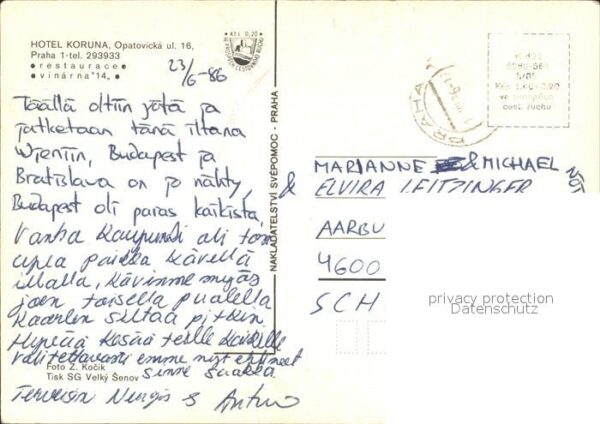 HOTEL KORUNA, Opatovická ul. 16,
Praha 1-tel. 293933
restaurace
vinárna "14"
23/6-86
Täällä oltiin yötä ja
jatketaan tänä iltana
Wieniin, Budapest ja
Bratislava on jo nähty,
Budapest oli paras kaikista,
Vanha Kaupunki oli
paikka kävellä
illalla, Kävimme myös
joen toisella puolella
Kaarlen siltaa pitkin
Hyvää Kesää teille kaikille
valitettavasti emme nyt ehtineet
sinne saakka
Foto Z. Kočík
Tisk SG Velký Šenov
Terveisin &
NAKLADATELSTVÍ SVÉPOMOC - PRAHA
Kčs 0,20
PRAHA
MARIANNE & MICHAEL
& ELVIRA LEITZINGER
AARBU
4600
SCH
privacy protection
Datenschutz